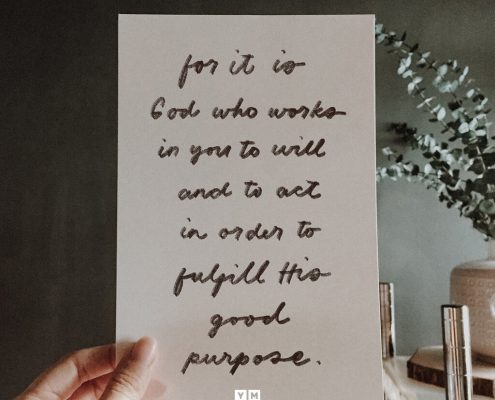 for it is
God who works
in you to will
and to act
in order to
fulfill His
good
purpose.
Y M